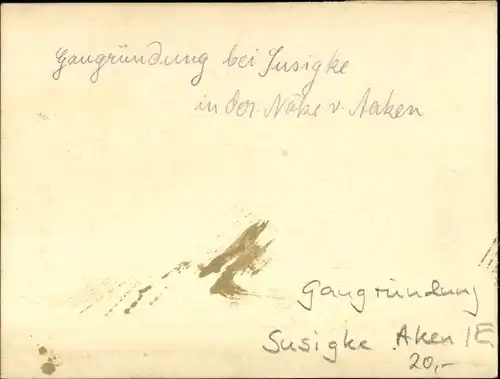 Gaugründung bei Susigke
in der Nähe v. Aaken
Gaugründung
Susigke Aken/E
20,-